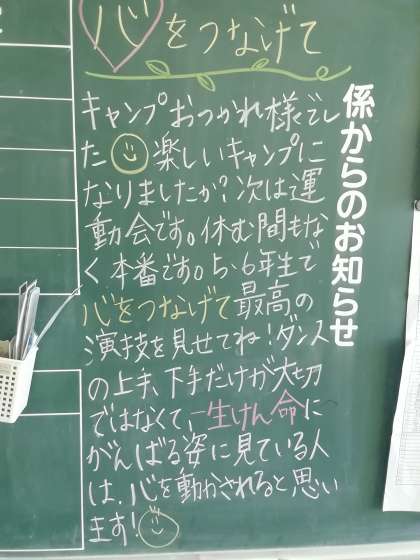 心をつなげて
係からのお知らせ
キャンプおつかれ様でし
た楽しいキャンプに
なりましたか?次は運
動会です。休む間もな
く本番です。5・6年生で
心をつなげて最高の
演技を見せてね!ダンス
の上手、下手だけが大切
ではなくて、一生けん命に
がんばる姿に見ている人
は、心を動かされると思い
ます!